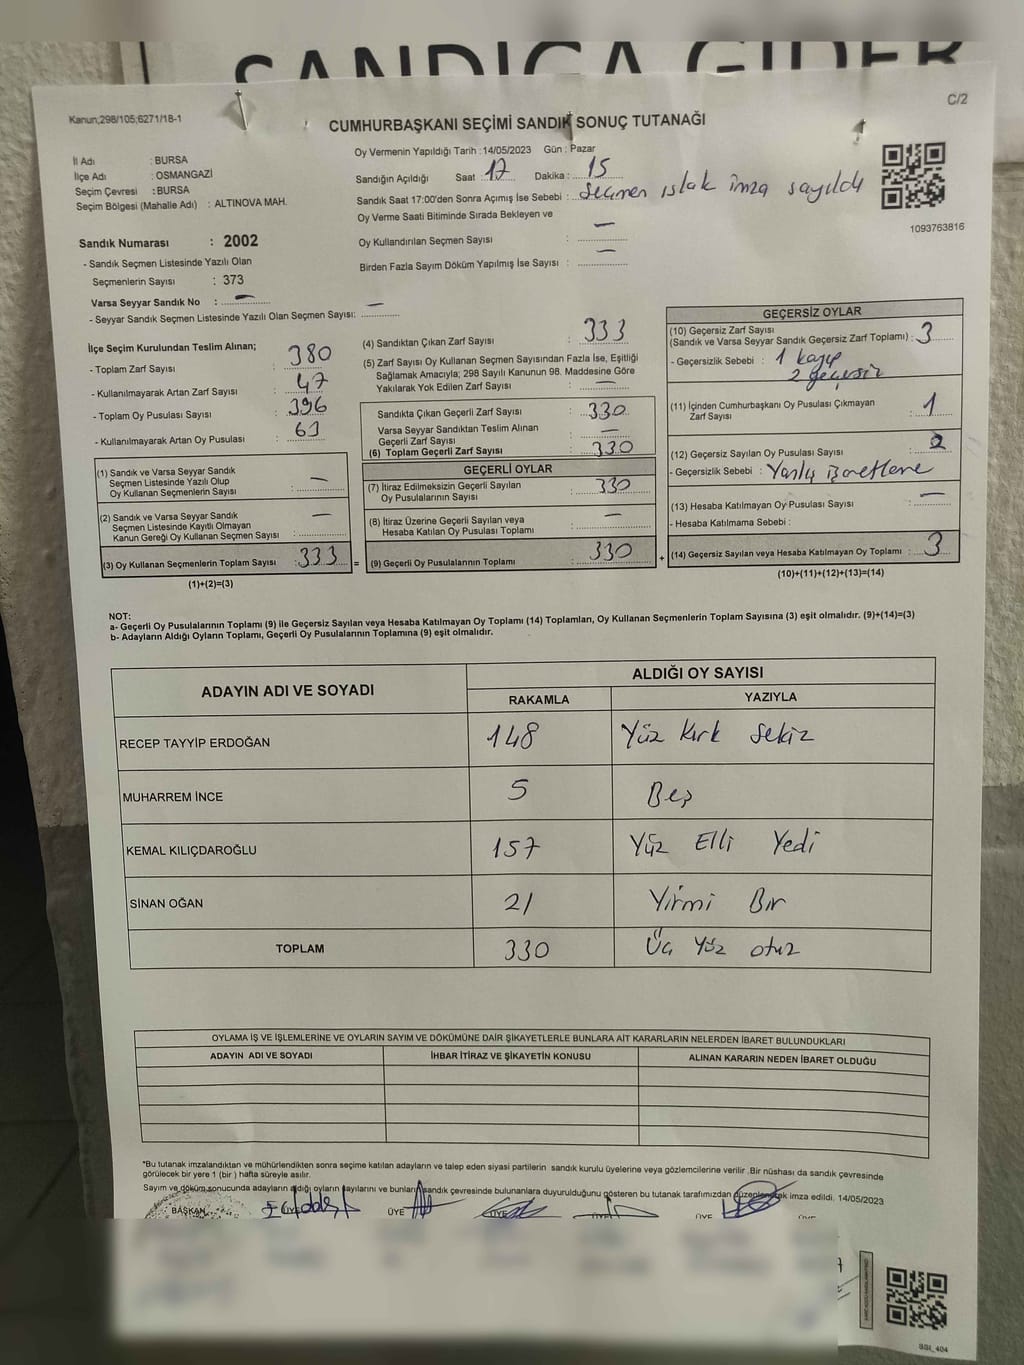 SANDIĞA GİDER
C/2
Kanun;298/105;6271/18-1
CUMHURBAŞKANI SEÇİMİ SANDIK SONUÇ TUTANAĞI
İl Adı : BURSA
İlçe Adı : OSMANGAZİ
Seçim Çevresi : BURSA
Seçim Bölgesi (Mahalle Adı) : ALTINOVA MAH.
Oy Vermenin Yapıldığı Tarih : 14/05/2023 Gün : Pazar
Sandığın Açıldığı Saat 17 Dakika : 15
Sandık Saat 17:00'den Sonra Açımış İse Sebebi : Seçmen ıslak imza sayıldı
Oy Verme Saati Bitiminde Sırada Bekleyen ve
Oy Kullandırılan Seçmen Sayısı : —
Birden Fazla Sayım Döküm Yapılmış İse Sayısı : —
1093763816
Sandık Numarası : 2002
- Sandık Seçmen Listesinde Yazılı Olan
Seçmenlerin Sayısı : 373
Varsa Seyyar Sandık No : —
- Seyyar Sandık Seçmen Listesinde Yazılı Olan Seçmen Sayısı: —
İlçe Seçim Kurulundan Teslim Alınan;
- Toplam Zarf Sayısı : 380
- Kullanılmayarak Artan Zarf Sayısı : 47
- Toplam Oy Pusulası Sayısı : 396
- Kullanılmayarak Artan Oy Pusulası : 63
(1) Sandık ve Varsa Seyyar Sandık
Seçmen Listesinde Yazılı Olup
Oy Kullanan Seçmenlerin Sayısı : —
(2) Sandık ve Varsa Seyyar Sandık
Seçmen Listesinde Kayıtlı Olmayan
Kanun Gereği Oy Kullanan Seçmen Sayısı : —
(3) Oy Kullanan Seçmenlerin Toplam Sayısı : 333 =
(1)+(2)=(3)
(4) Sandıktan Çıkan Zarf Sayısı : 333
(5) Zarf Sayısı Oy Kullanan Seçmen Sayısından Fazla İse, Eşitliği
Sağlamak Amacıyla; 298 Sayılı Kanunun 98. Maddesine Göre
Yakılarak Yok Edilen Zarf Sayısı : —
Sandıkta Çıkan Geçerli Zarf Sayısı : 330
Varsa Seyyar Sandıktan Teslim Alınan
Geçerli Zarf Sayısı : —
(6) Toplam Geçerli Zarf Sayısı : 330
GEÇERLİ OYLAR
(7) İtiraz Edilmeksizin Geçerli Sayılan
Oy Pusulalarının Sayısı : 330
(8) İtiraz Üzerine Geçerli Sayılan veya
Hesaba Katılan Oy Pusulası Toplamı : —
(9) Geçerli Oy Pusulalarının Toplamı : 330 +
GEÇERSİZ OYLAR
(10) Geçersiz Zarf Sayısı
(Sandık ve Varsa Seyyar Sandık Geçersiz Zarf Toplamı) : 3
- Geçersizlik Sebebi : 1 kayıp
2 geçersiz
(11) İçinden Cumhurbaşkanı Oy Pusulası Çıkmayan
Zarf Sayısı : 1
(12) Geçersiz Sayılan Oy Pusulası Sayısı : 2
- Geçersizlik Sebebi : Yanlış işaretleme
(13) Hesaba Katılmayan Oy Pusulası Sayısı : —
- Hesaba Katılmama Sebebi :
(14) Geçersiz Sayılan veya Hesaba Katılmayan Oy Toplamı : 3
(10)+(11)+(12)+(13)=(14)
NOT:
a- Geçerli Oy Pusulalarının Toplamı (9) ile Geçersiz Sayılan veya Hesaba Katılmayan Oy Toplamı (14) Toplamları, Oy Kullanan Seçmenlerin Toplam Sayısına (3) eşit olmalıdır. (9)+(14)=(3)
b- Adayların Aldığı Oyların Toplamı, Geçerli Oy Pusulalarının Toplamına (9) eşit olmalıdır.
ADAYIN ADI VE SOYADI ALDIĞI OY SAYISI
RAKAMLA YAZIYLA
RECEP TAYYİP ERDOĞAN 148 Yüz Kırk Sekiz
MUHARREM İNCE 5 Beş
KEMAL KILIÇDAROĞLU 157 Yüz Elli Yedi
SİNAN OĞAN 21 Yirmi Bir
TOPLAM 330 Üç Yüz otuz
OYLAMA İŞ VE İŞLEMLERİNE VE OYLARIN SAYIM VE DÖKÜMÜNE DAİR ŞİKAYETLERLE BUNLARA AİT KARARLARIN NELERDEN İBARET BULUNDUKLARI
ADAYIN ADI VE SOYADI İHBAR İTİRAZ VE ŞİKAYETİN KONUSU ALINAN KARARIN NEDEN İBARET OLDUĞU
*Bu tutanak imzalandıktan ve mühürlendikten sonra seçime katılan adayların ve talep eden siyasi partilerin sandık kurulu üyelerine veya gözlemcilerine verilir .Bir nüshası da sandık çevresinde
görülecek bir yere 1 (bir ) hafta süreyle asılır.
Sayım ve döküm sonucunda adayların aldığı oyların sayılarını ve bunların sandık çevresinde bulunanlara duyurulduğunu gösteren bu tutanak tarafımızdan düzenlenerek imza edildi. 14/05/2023
BAŞKAN ÜYE ÜYE ÜYE ÜYE ÜYE
SSI_404